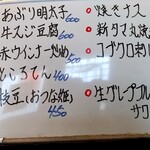 あぶり明太子 600
牛スジ豆腐 600
赤ウインナー炒め 500
ところてん 400
枝豆(おつな姫) 450
焼きナス
新タマ丸焼
コブクロ刺し
生グレープフルーツ
サワ